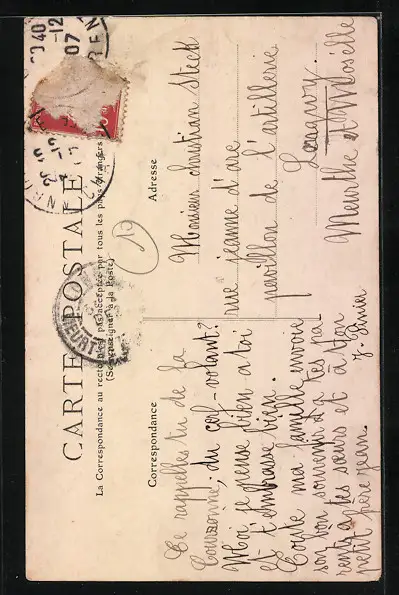 CARTE POSTALE
La Correspondance au recto n'est pas acceptée par tous les pays étrangers
(Se renseigner à la Poste)
Correspondance
Adresse
Te rappelles tu de la
Couronne, du cerf-volant?
Moi, je pense bien à toi
et t'embrasse bien.
Toute ma famille envoie
son bon souvenir à tes pa
rents, à tes sœurs et à ton
petit frère jean.
Monsieur Christian Steck
rue jeanne d'arc
pavillon de l'artillerie
Longwy
Meurthe et Moselle
07
MEURT